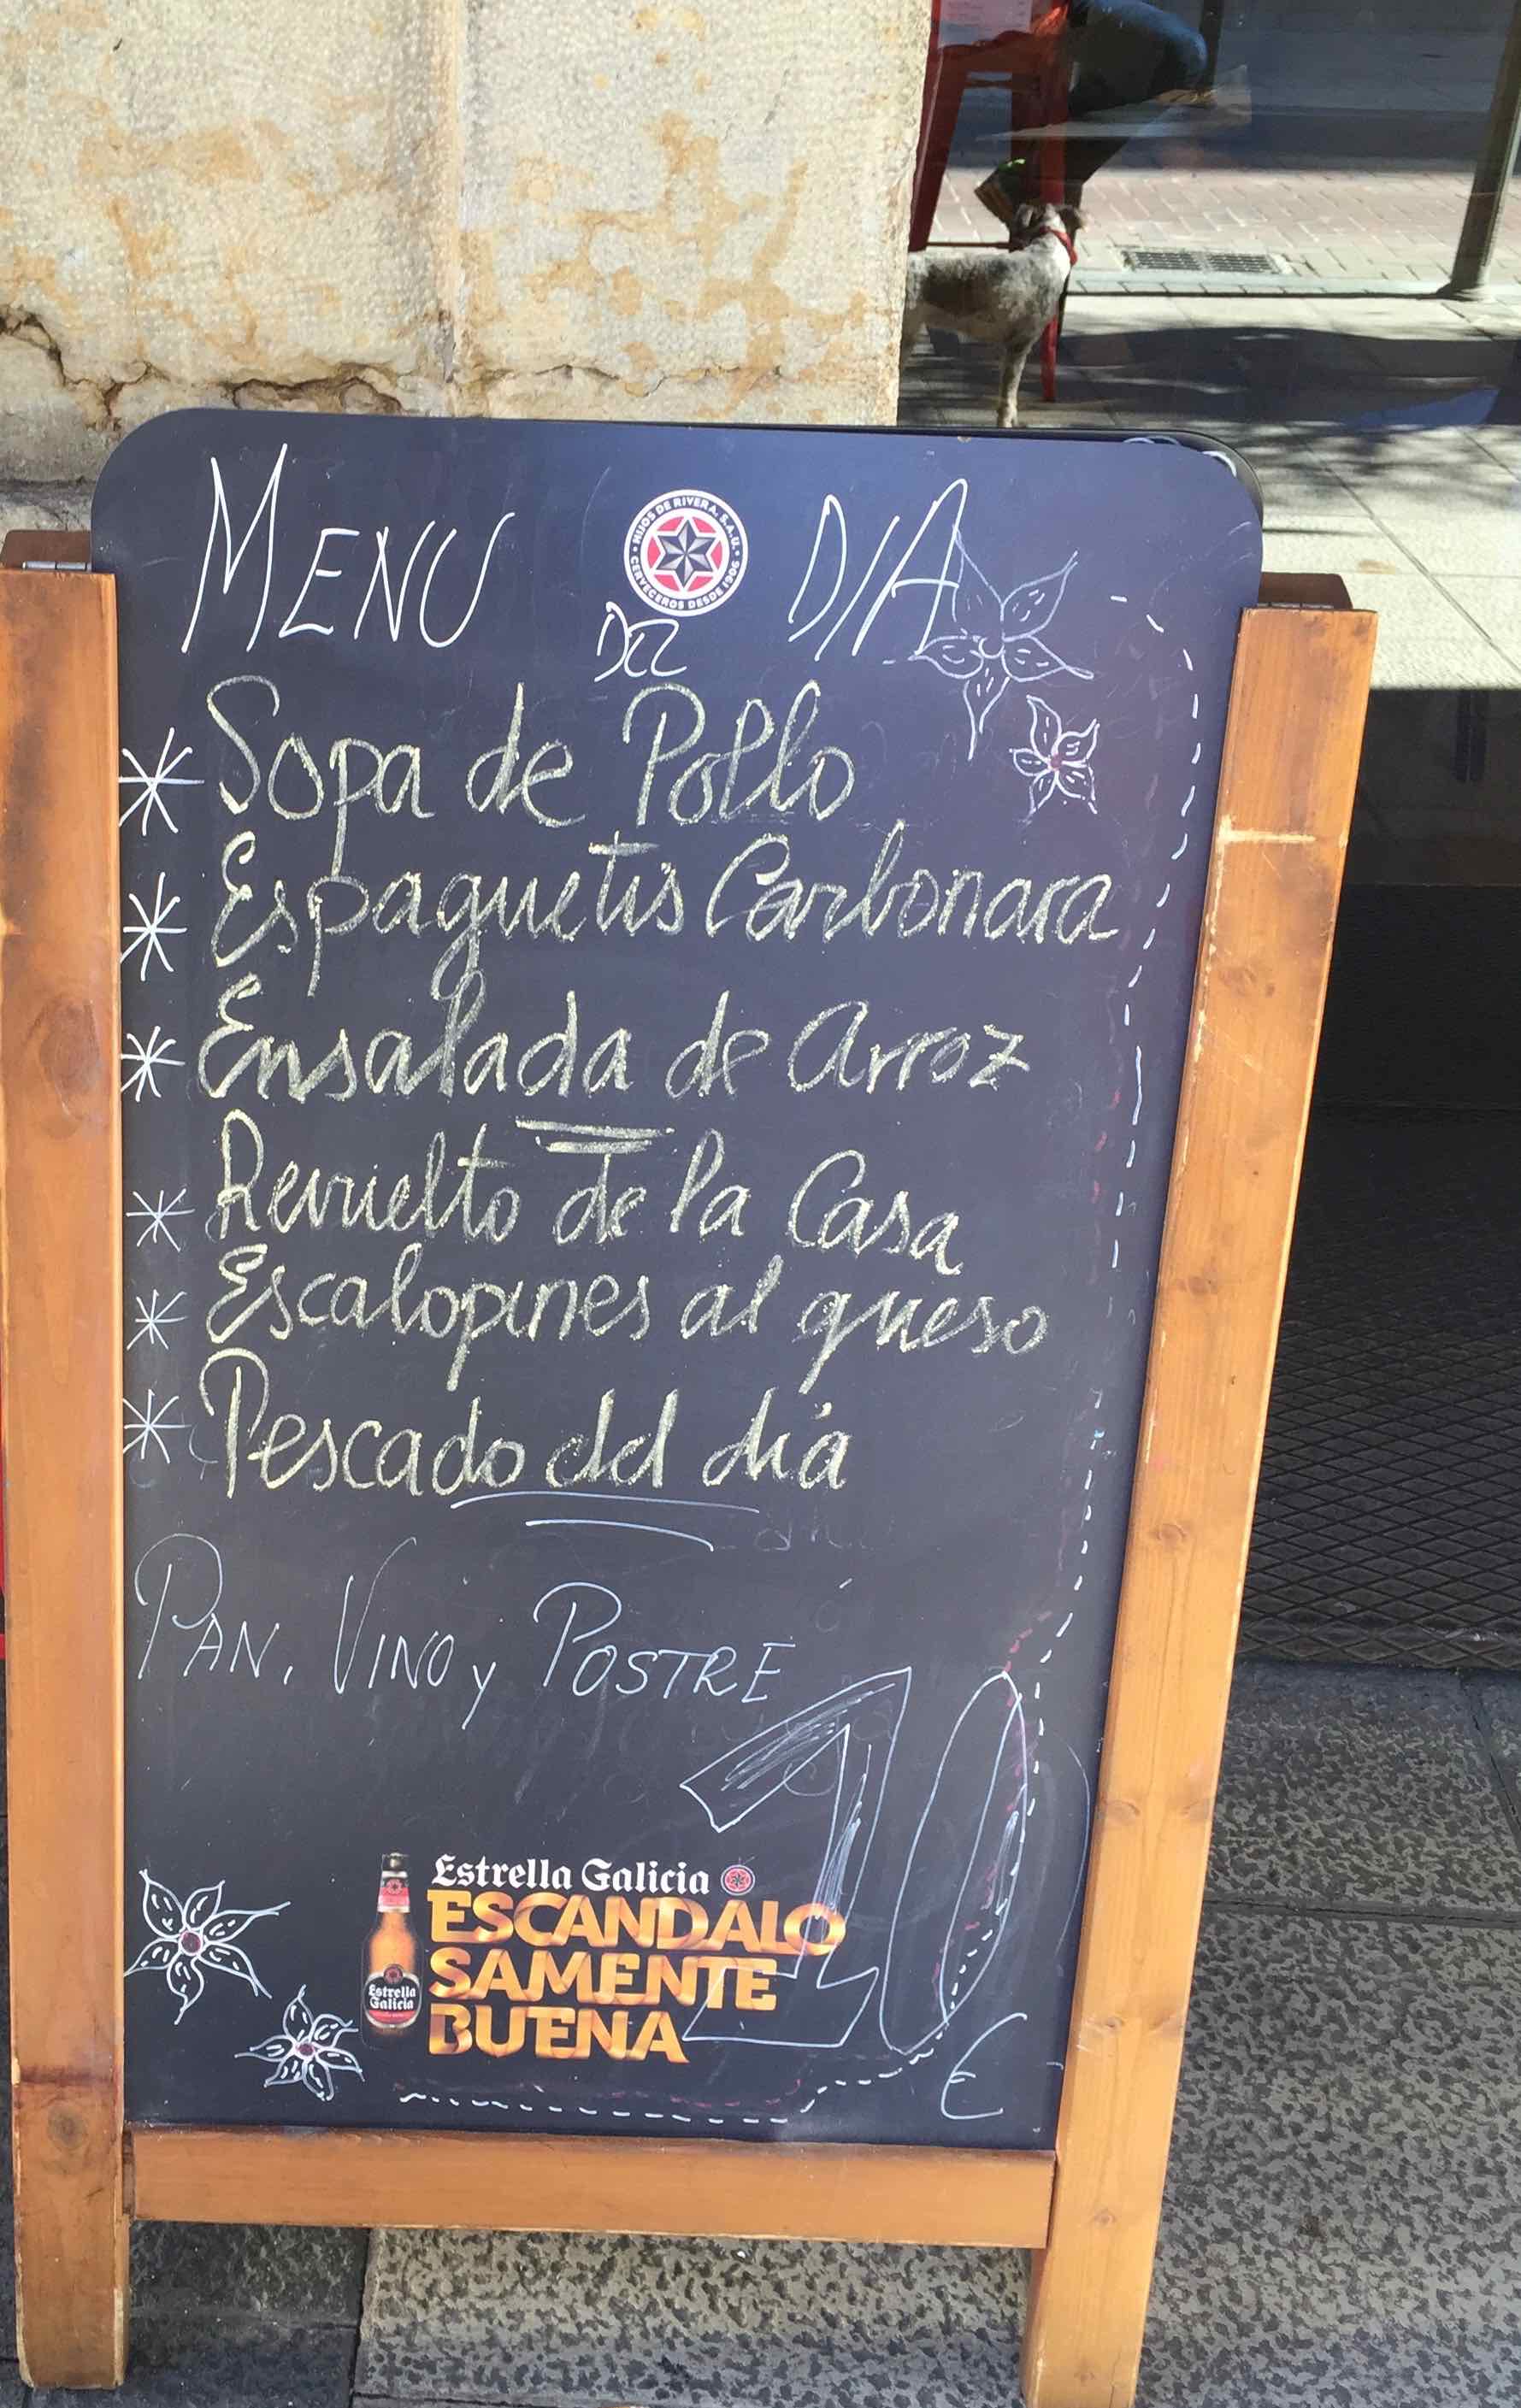 MENU DEL DIA
HIJOS DE RIVERA, S.A.U. · CERVECEROS DESDE 1906 ·
Sopa de Pollo
Espaguetis Carbonara
Ensalada de Arroz
Revuelto de la Casa
Escalopines al queso
Pescado del día
PAN, VINO y POSTRE
10 €
Estrella Galicia
ESCANDALO
SAMENTE
BUENA
Estrella
Galicia